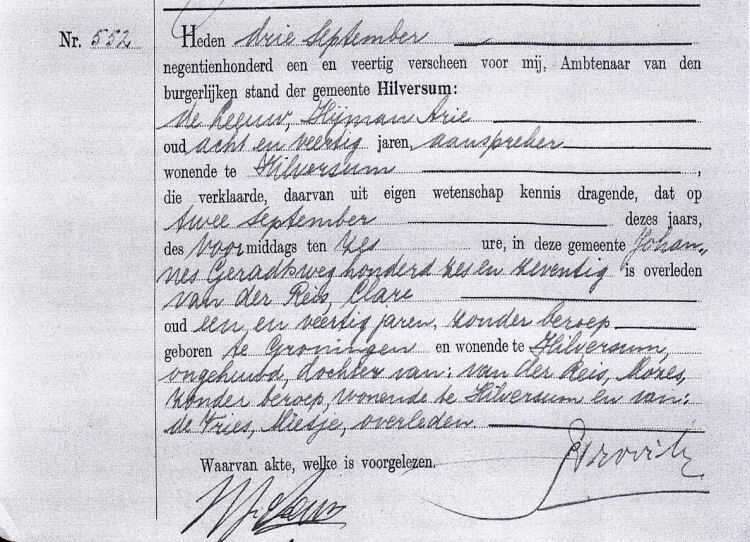 Nr. 552
Heden drie September
negentienhonderd een en veertig verscheen voor mij, Ambtenaar van den
burgerlijken stand der gemeente Hilversum:
de Leeuw, Hijman Arie
oud acht en veertig jaren, aanspreker
wonende te Hilversum,
die verklaarde, daarvan uit eigen wetenschap kennis dragende, dat op
twee September dezes jaars,
des Voormiddags ten zes ure, in deze gemeente Johan„
nes Geradtsweg honderd zes en zeventig is overleden
van der Reis, Clare
oud een en veertig jaren, zonder beroep
geboren te Groningen en wonende te Hilversum,
ongehuwd, dochter van: van der Reis, Mozes,
zonder beroep, wonende te Hilversum en van:
de Vries, Mietje, overleden
Waarvan akte, welke is voorgelezen.